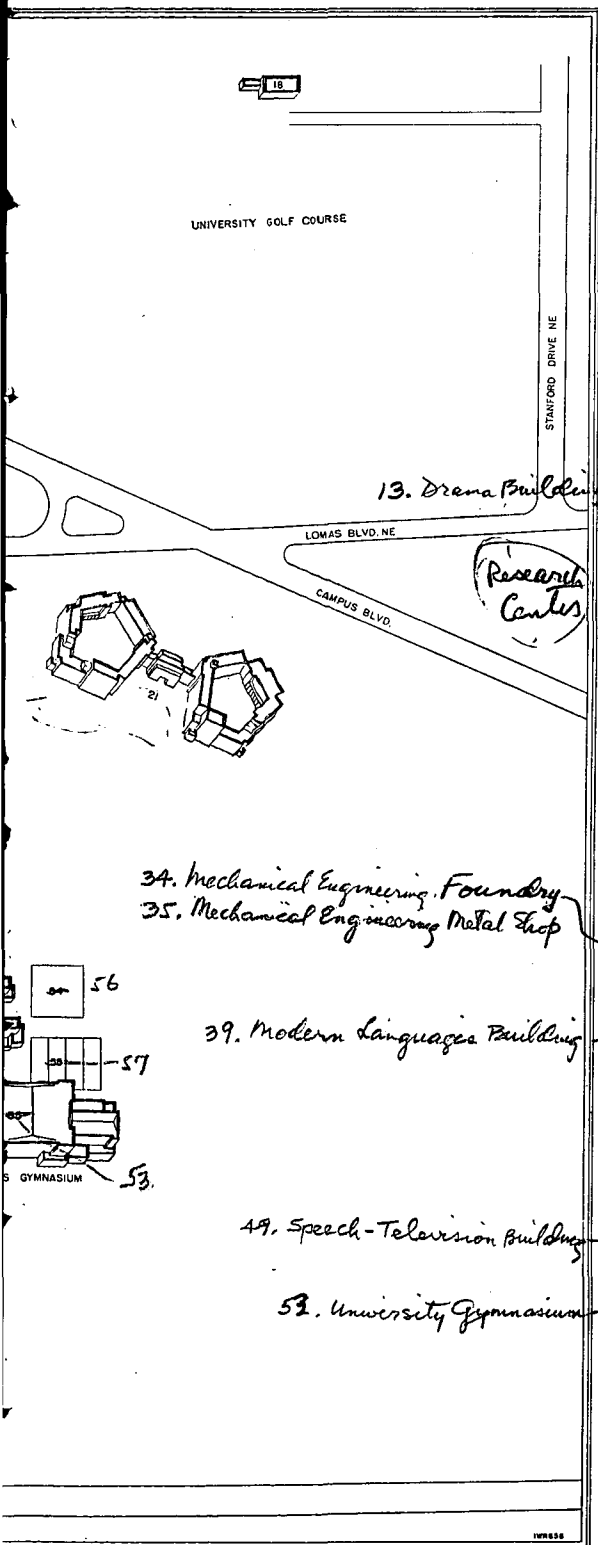 18
UNIVERSITY GOLF COURSE
STANFORD DRIVE NE
13. Drama Buildin
LOMAS BLVD. NE
Research
Center
CAMPUS BLVD.
21
34. Mechanical Engineering Foundry
35. Mechanical Engineering Metal Shop
56
39. Modern Languages Building
57
S GYMNASIUM
53.
49. Speech-Television Building
University Gymnasium